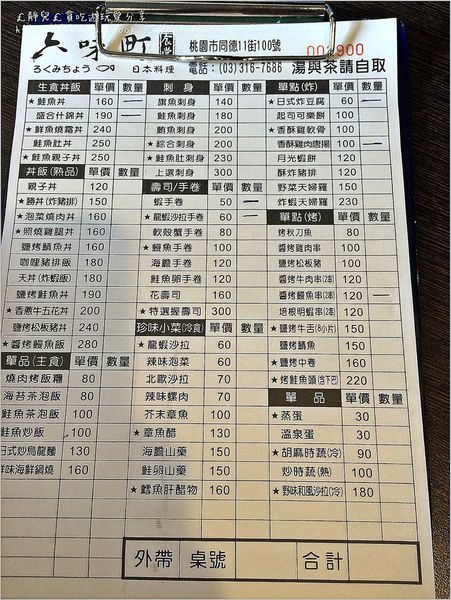 ㄥ靜兒ㄥ貪吃遊玩兒分享
六味町
ろくみちょう
日本料理
桃園市同德11街100號
電話：(03)316-7686 湯與茶請自取
生食丼飯 單價 數量
★鮭魚丼 160 一
盛合什錦丼 190
★鮮魚燒霜丼 240
鮭魚肚丼 250
★鮭魚親子丼 250
丼飯(熟品) 單價 數量
親子丼 120
★勝丼(炸豬排) 150
★泡菜燒肉丼 160
★照燒雞腿丼 160
鹽烤鯖魚丼 160
咖哩豬排飯 180
天丼(炸蝦飯) 180
鹽烤鮭魚丼 190
★香蔥牛五花丼 200
鹽烤松板豬丼 240
★醬烤鰻魚飯 280
單品(主食) 單價 數量
燒肉烤飯糰 80
海苔茶泡飯 80
鮭魚茶泡飯 100
鮭魚炒飯 100
日式炒烏龍麵 130
鮮味海鮮鍋燒 160
刺身 單價 數量
旗魚刺身 140
鮭魚刺身 180
鮪魚刺身 200
★綜合刺身 200
★鮭魚肚刺身 230
上選刺身 300
壽司/手卷 單價 數量
蝦手卷 50 一
★龍蝦沙拉手卷 60 一
軟殼蟹手卷 80
★鰻魚手卷 100
海膽手卷 120
鮭魚卵手卷 120
花壽司 160
★特選握壽司 300
珍味小菜(冷食) 單價 數量
★龍蝦沙拉 60
辣味泡菜 60
北歐沙拉 70
辣味螺肉 70
芥末章魚 100
★章魚醋 130
海膽山藥 150
鮭卵山藥 150
★鱈魚肝醋物 160
單點(炸) 單價 數量
★日式炸豆腐 60 一
起司可樂餅 100
★香酥雞軟骨 100
香酥雞肉唐揚 100 一
月光蝦餅 120
酥炸豬排 120
野菜天婦羅 150
炸蝦天婦羅 230
單點(烤) 單價 數量
烤秋刀魚 90
醬烤雞肉串 100
鹽烤松板豬 160
醬烤牛肉串(2串) 120
★醬烤鰻魚串(2串) 120 一
培根明蝦串(2串) 150
★鹽烤牛舌(8小片) 150
鹽烤鯖魚 150
★鹽烤中卷 160
★烤鮭魚頭(含下巴) 220
單品 單價 數量
★蒸蛋 30
溫泉蛋 30
★胡麻時蔬(冷) 90
炒時蔬(熱) 100
★野味和風沙拉(冷) 180
外帶 桌號 合計